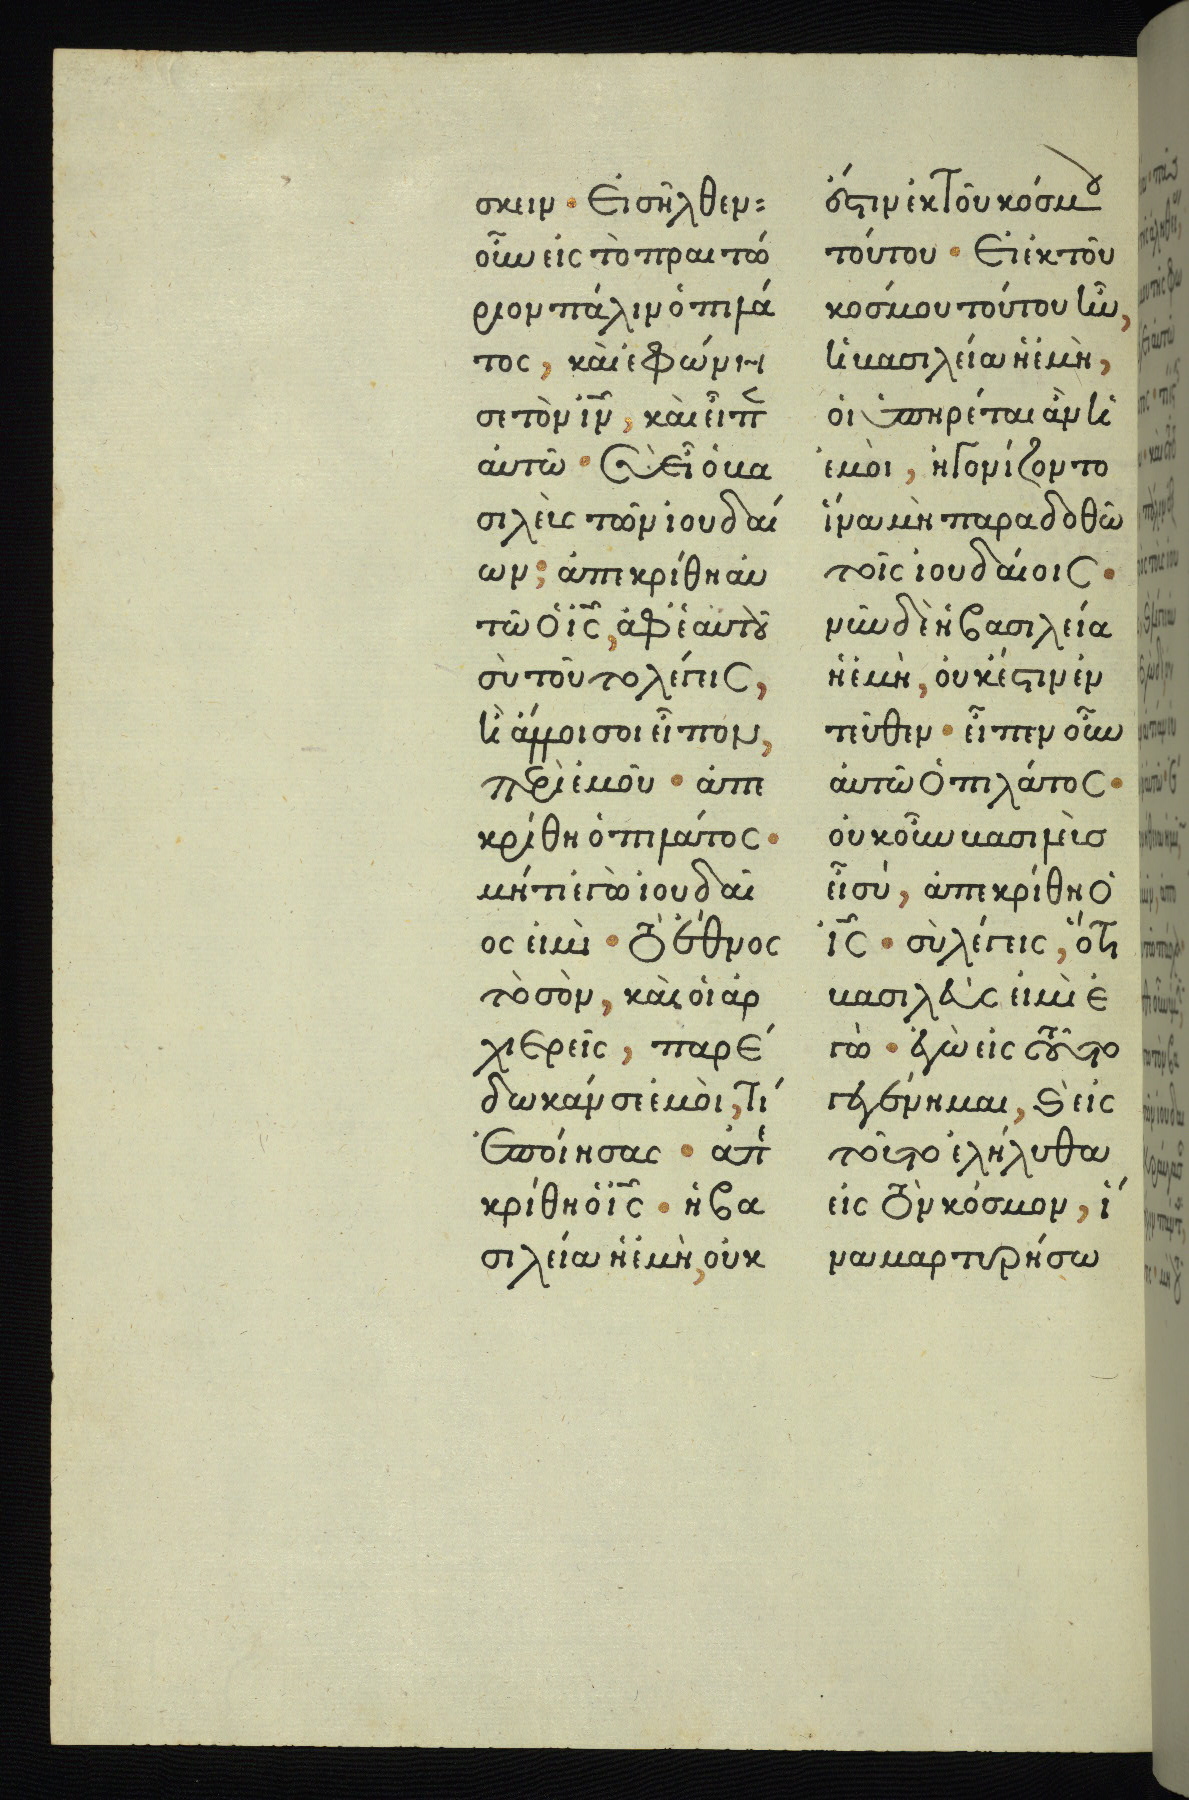 σκειν · Εἰσῆλθεν
οὖν εἰς τὸ πραιτώ
ριον πάλιν ὁ πιλά
τος, καὶ ἐφώνη
σε τὸν ἰν̅, καὶ εἶπ
αὐτῶ · Σὺ εἶ ὁ βα
σιλεὺς τῶν ἰουδαί
ων; ἀπεκρίθη αὐ
τῶ ὁ ἰς̅, ἀφ' ἑαυτοῦ
σὺ τοῦτο λέγεις,
ἢ ἄλλοι σοι εἶπον,
περὶ ἐμοῦ · ἀπε
κρίθη ὁ πιλάτος ·
μήτι ἐγὼ ἰουδαῖ
ος εἰμὶ · τὸ ἔθνος
τὸ σὸν, καὶ οἱ ἀρ
χιερεῖς, παρέ
δωκάν σε ἐμοὶ, τί
ἐποίησας · ἀπε
κρίθη ὁ ἰς̅ · ἡ βα
σιλεία ἡ ἐμὴ, οὐκ
ἔστιν ἐκ τοῦ κόσμου
τούτου · Εἰ ἐκ τοῦ
κόσμου τούτου ἦν,
ἡ βασιλεία ἡ ἐμὴ,
οἱ ὑπηρέται ἂν οἱ
ἐμοὶ, ἠγωνίζοντο
ἵνα μὴ παραδοθῶ
τοῖς ἰουδαίοις ·
νῦν δὲ ἡ βασιλεία
ἡ ἐμὴ, οὐκ ἔστιν ἐν
τεῦθεν · εἶπεν οὖν
αὐτῶ ὁ πιλάτος ·
οὐκοῦν βασιλεὺς
εἶ σύ, ἀπεκρίθη ὁ
ἰς̅ · σὺ λέγεις, ὅτι
βασιλεύς εἰμὶ ἐ
γώ · ἐγὼ εἰς τοῦτο
γεγέννημαι, καὶ εἰς
τοῦτο ἐλήλυθα
εἰς τὸν κόσμον, ἵ
να μαρτυρήσω